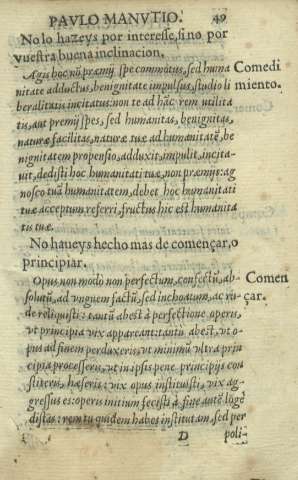 PAVLO MANVTIO. 49
No lo hazeys por interesse, si no por
vuestra buena inclinacion.
Ægis hoc nũ præmij spe commotus, sed huma Comedi
nitate adductus, benignitate impulsus, studio li miento.
beralitatis incitatus: non te ad hãc rem utilita
tis, aut premij spes, sed humanitas, benignitas,
naturæ facilitas, naturæ suæ ad humanitatẽ, be
nignitatem propensio, adduxit, impulit, incita-
uit, dedisti hoc humanitati tuæ, non præmijs: ag
nosco tuã humanitatem, debet hoc humanitati
tuæ acceptum referri, fructus hic est humanita
tis tuæ.
No haueys hecho mas de començar, o
principiar.
Opus non modo non perfectum, confectũ, ab- Comen
solutũ, ad vnguem factũ, sed inchoatum, ac ru- çar.
de reliquisti: tantũ abest à perfectione operis,
vt principia vix appareant: tantũ abest, vt o-
pus ad finem perduxeris, vt minimũ vltra prin
cipia processeris, vt in ipsis pene principijs con
stiteris, hæseris: vix opus instituisti, vix ag-
gressus es: operis initium fecisti à fine autẽ lõge
distas: rem tu quidem habes institutam, sed per
D poli-